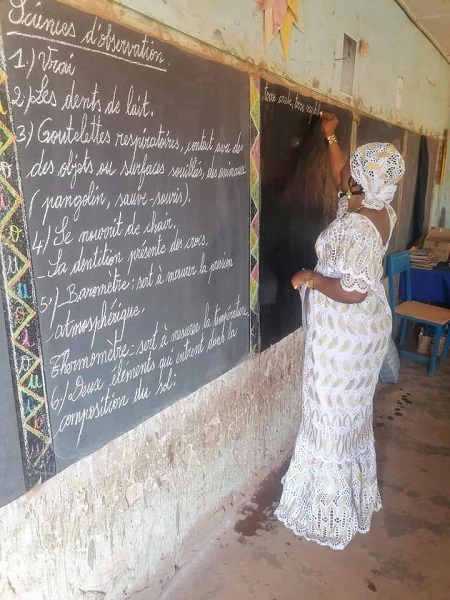 Sciences d'observation.
1) Vrai
2) Les dents de lait.
3) Goutelettes respiratoires, contact avec des
des objets ou surfaces souillés, des animaux
(pangolin, sauve-souris).
4) Se nourrit de chair.
- Sa dentition présente des crocs.
5) Baromètre: sert à mesurer la pression
atmosphérique.
Thermomètre = sert à mesurer la température
6) Deux éléments qui entrent dans la
composition du sol: